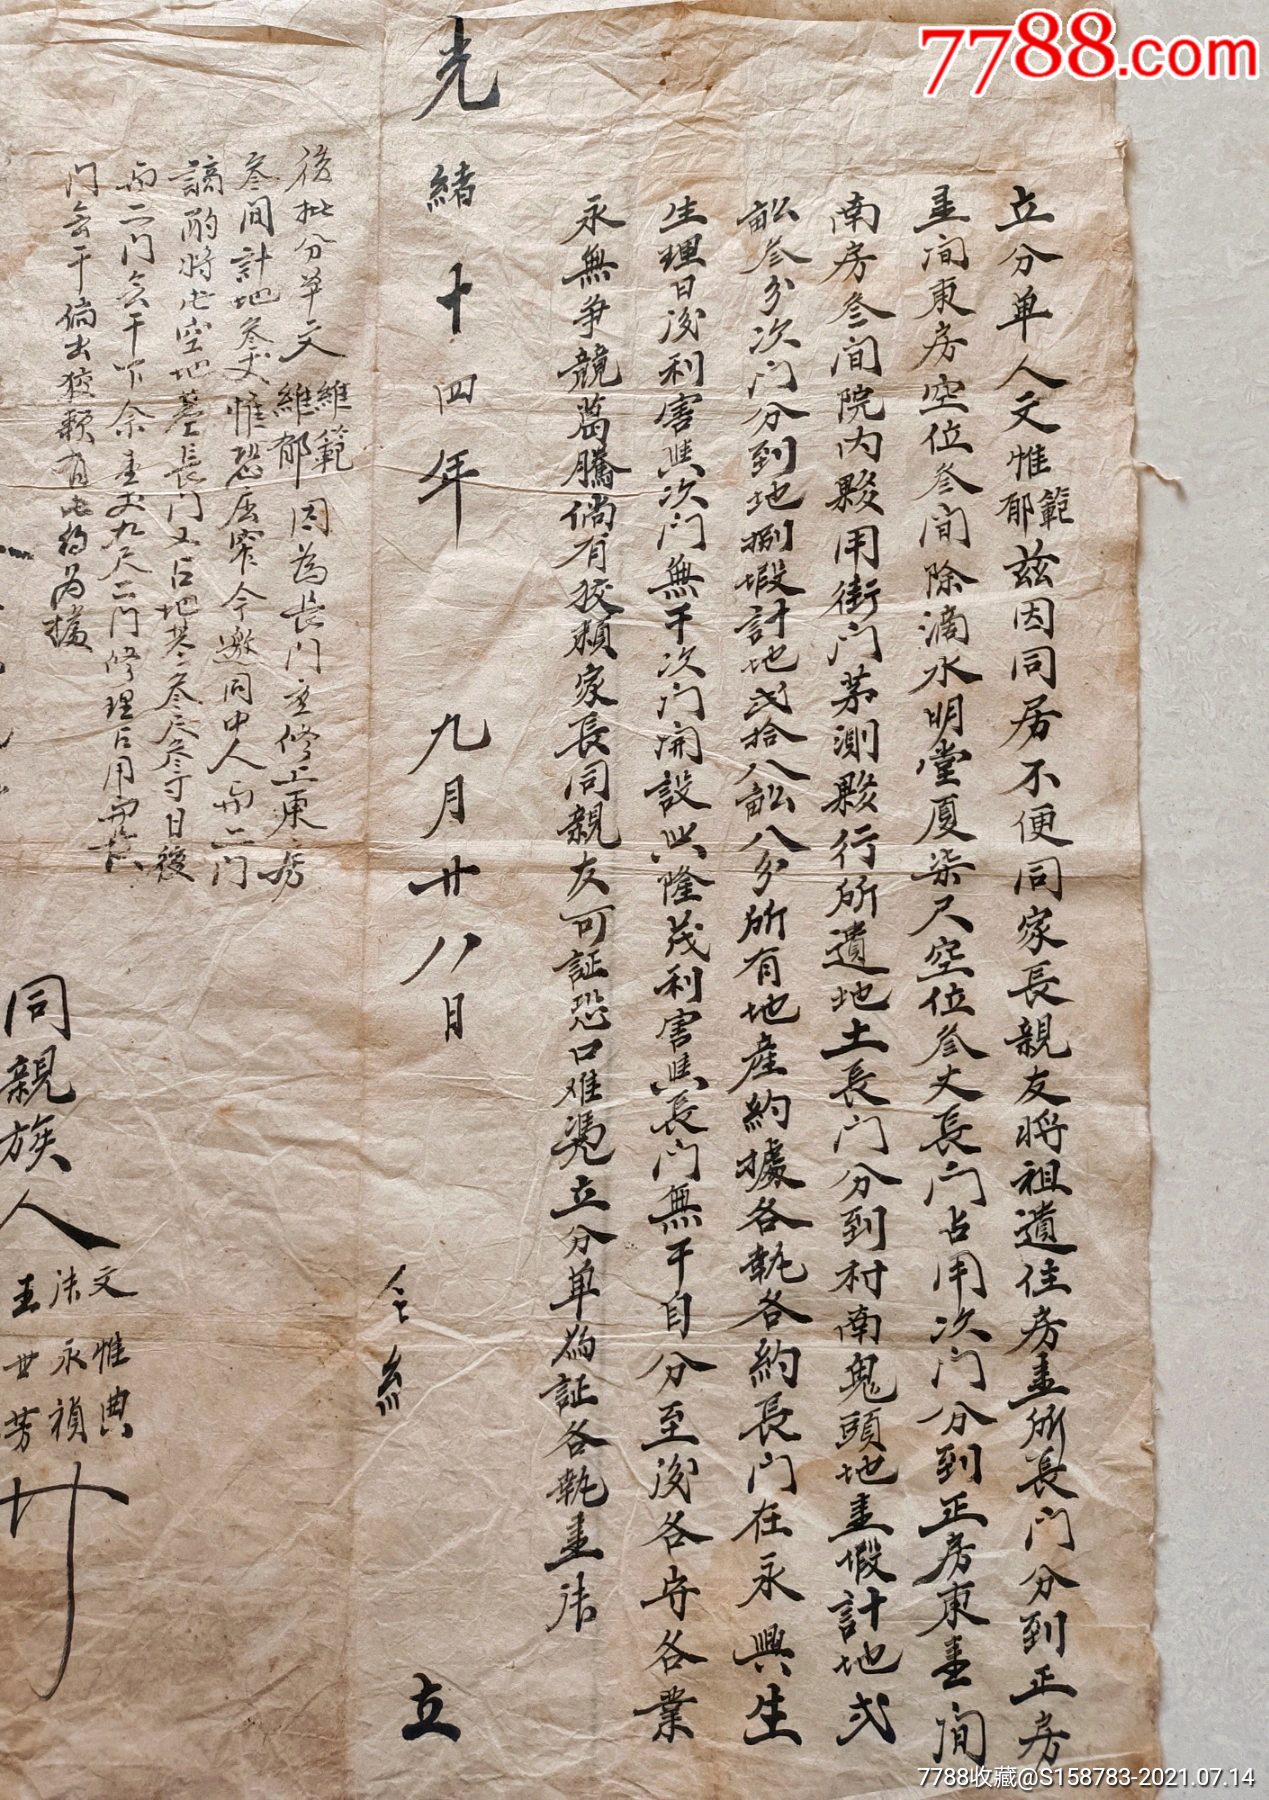 7788.com
立分单人文惟範郁兹因同居不便同家長親友將祖遺住房壹所長門分到正房
壹间東房空位叁间除滴水明堂厦柒尺空位叁丈長门占用次门分到正房東壹间
南房叁间院内夥用街门茅測夥行所遺地土長门分到村南鬼頭地壹塅計地弍
畆叁分次门分到地捌塅計地弍拾八畆八分所有地產約據各執各約長门在永興生
生理日後利害與次门無干次门開設興隆茂利害與長门無干自分至後各守各業
永無争競萬騰倘有狡賴家長同親友可証恐口难憑立分单為証各執壹张
光緒十四年九月廿八日 仝 立
後批分单文維範維郁因為長门立修上東房
叁间計地叁丈惟恐屈窄今邀同中人向二门
謫酌將此空地基長门又占地基叁尺叁寸日後
向二门無干下余壹丈九尺二门修理占用與長
门無干倘出狡賴有此約为據
同親族人
文惟典
张永禎
王世芳
7788收藏@S158783-2021.07.14